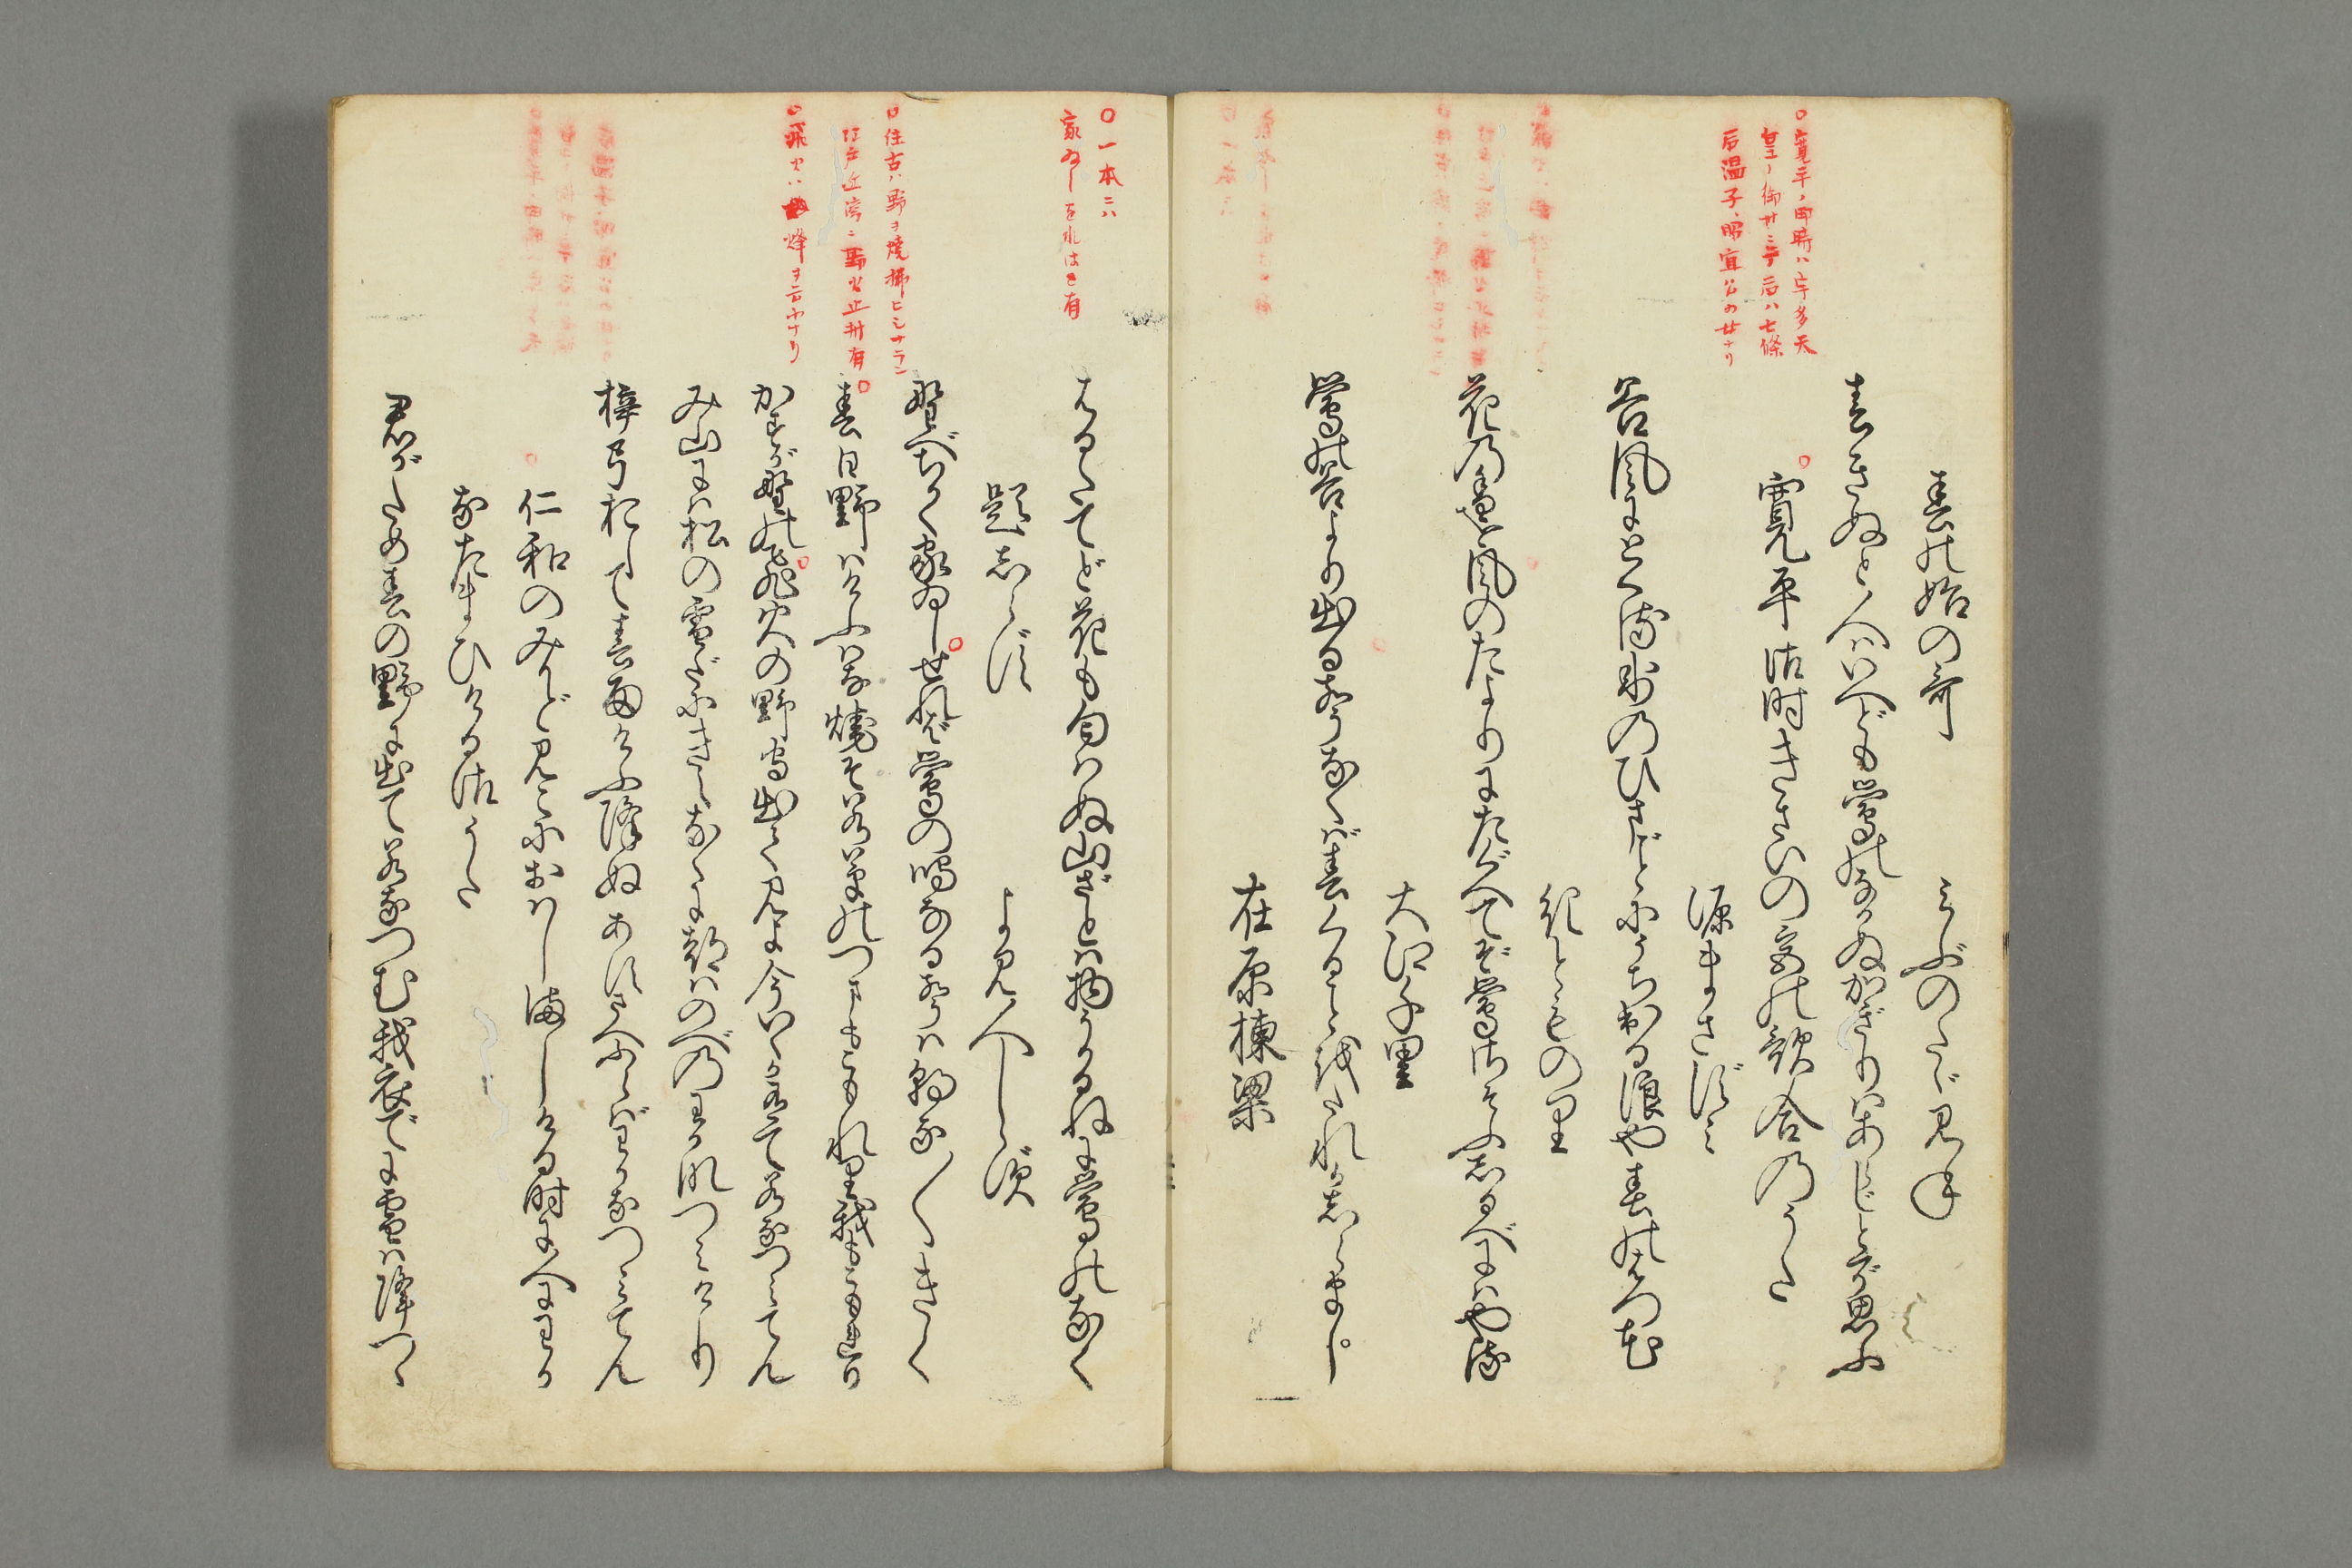 ○寛平ノ御時ハ宇多天
皇ノ御廿ニテ后ハ七條
后温子昭宣公の廿ナリ
春の始の哥
みぶのたゞみね
春きぬと人はいへども鶯のなかぬかぎりはあらじとぞ思ふ
○寛平御時きさいの宮の歌合のうた
源まさずみ
谷風にとくる氷のひまごとにうち出る浪や春のはつ花
紀とものり
花の香を風のたよりにたぐへてぞ鶯さそふしるべにはやる
大江千里
鶯の谷より出る聲なくば春くることをたれかしらまし
在原棟梁
○一本ニハ
家ゐしをればと有
○住古ハ野ヲ焼拂ヒシナラン
江戸近済ニ野火止村有
○飛火ハ烽ヲ云ナリ
はるたてど花も匂はぬ山ざとは物うかるねに鶯のなく
題しらず
よみ人しらず
野べちかく家ゐし○せれば鶯の鳴なる聲は朝な〳〵きく
○春日野はけふはな焼そ若草のつまもこもれり我もこもれり
かすが野の○飛火の野守出て見よ今いくか有て若菜つみてん
み山には松の雪だにきえなくに都はのべのわかなつみけり
梓弓おして春雨けふ降ぬあすさへふらばわかなつみてん
○仁和のみかどみこにおはしましける時に人にわか
なたまひける御うた
君がため春の野に出て若菜つむ我衣手に雪は降つゝ